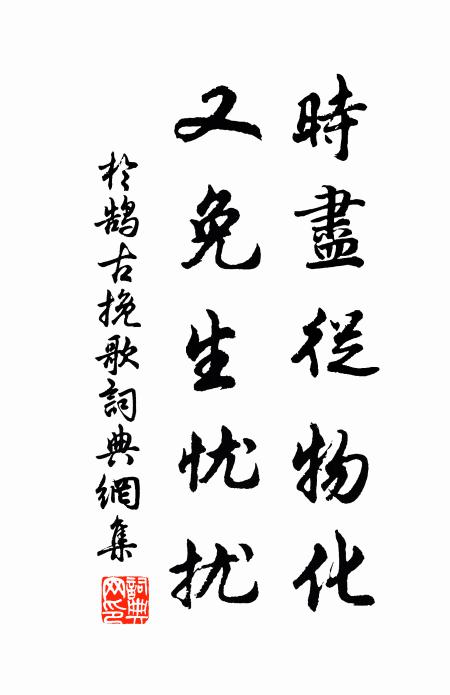 時盡從物化
又免生忧扰
於鵠古挽歌詞典網集
詞典网印